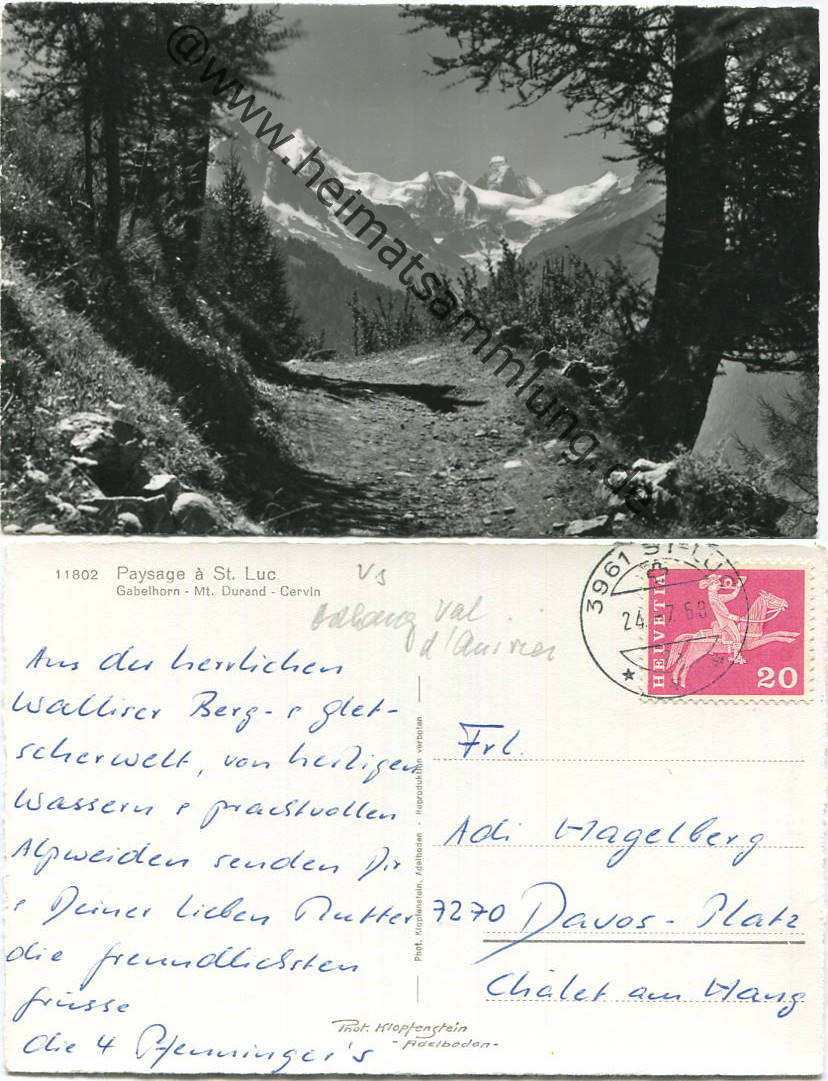 @www.heimatsammlung.de
11802 Paysage à St. Luc
Gabelhorn - Mt. Durand - Cervin
Vs
Val
d'Anivier
3961 ST-LUC
24. 7.68
HELVETIA
20
Aus der herrlichen
Walliser Berg- & glet-
scherwelt, von heiligen
Wassern & prachtvollen
Alpweiden senden Dir
& Deiner lieben Mutter
die freundlichsten
grüsse
die 4 Pfenninger's
Phot. Klopfenstein, Adelboden - Reproduktion verboten
Frl.
Adi Hagelberg
7270 Davos-Platz
Châlet am Hang
Phot. Klopfenstein
- Adelboden -